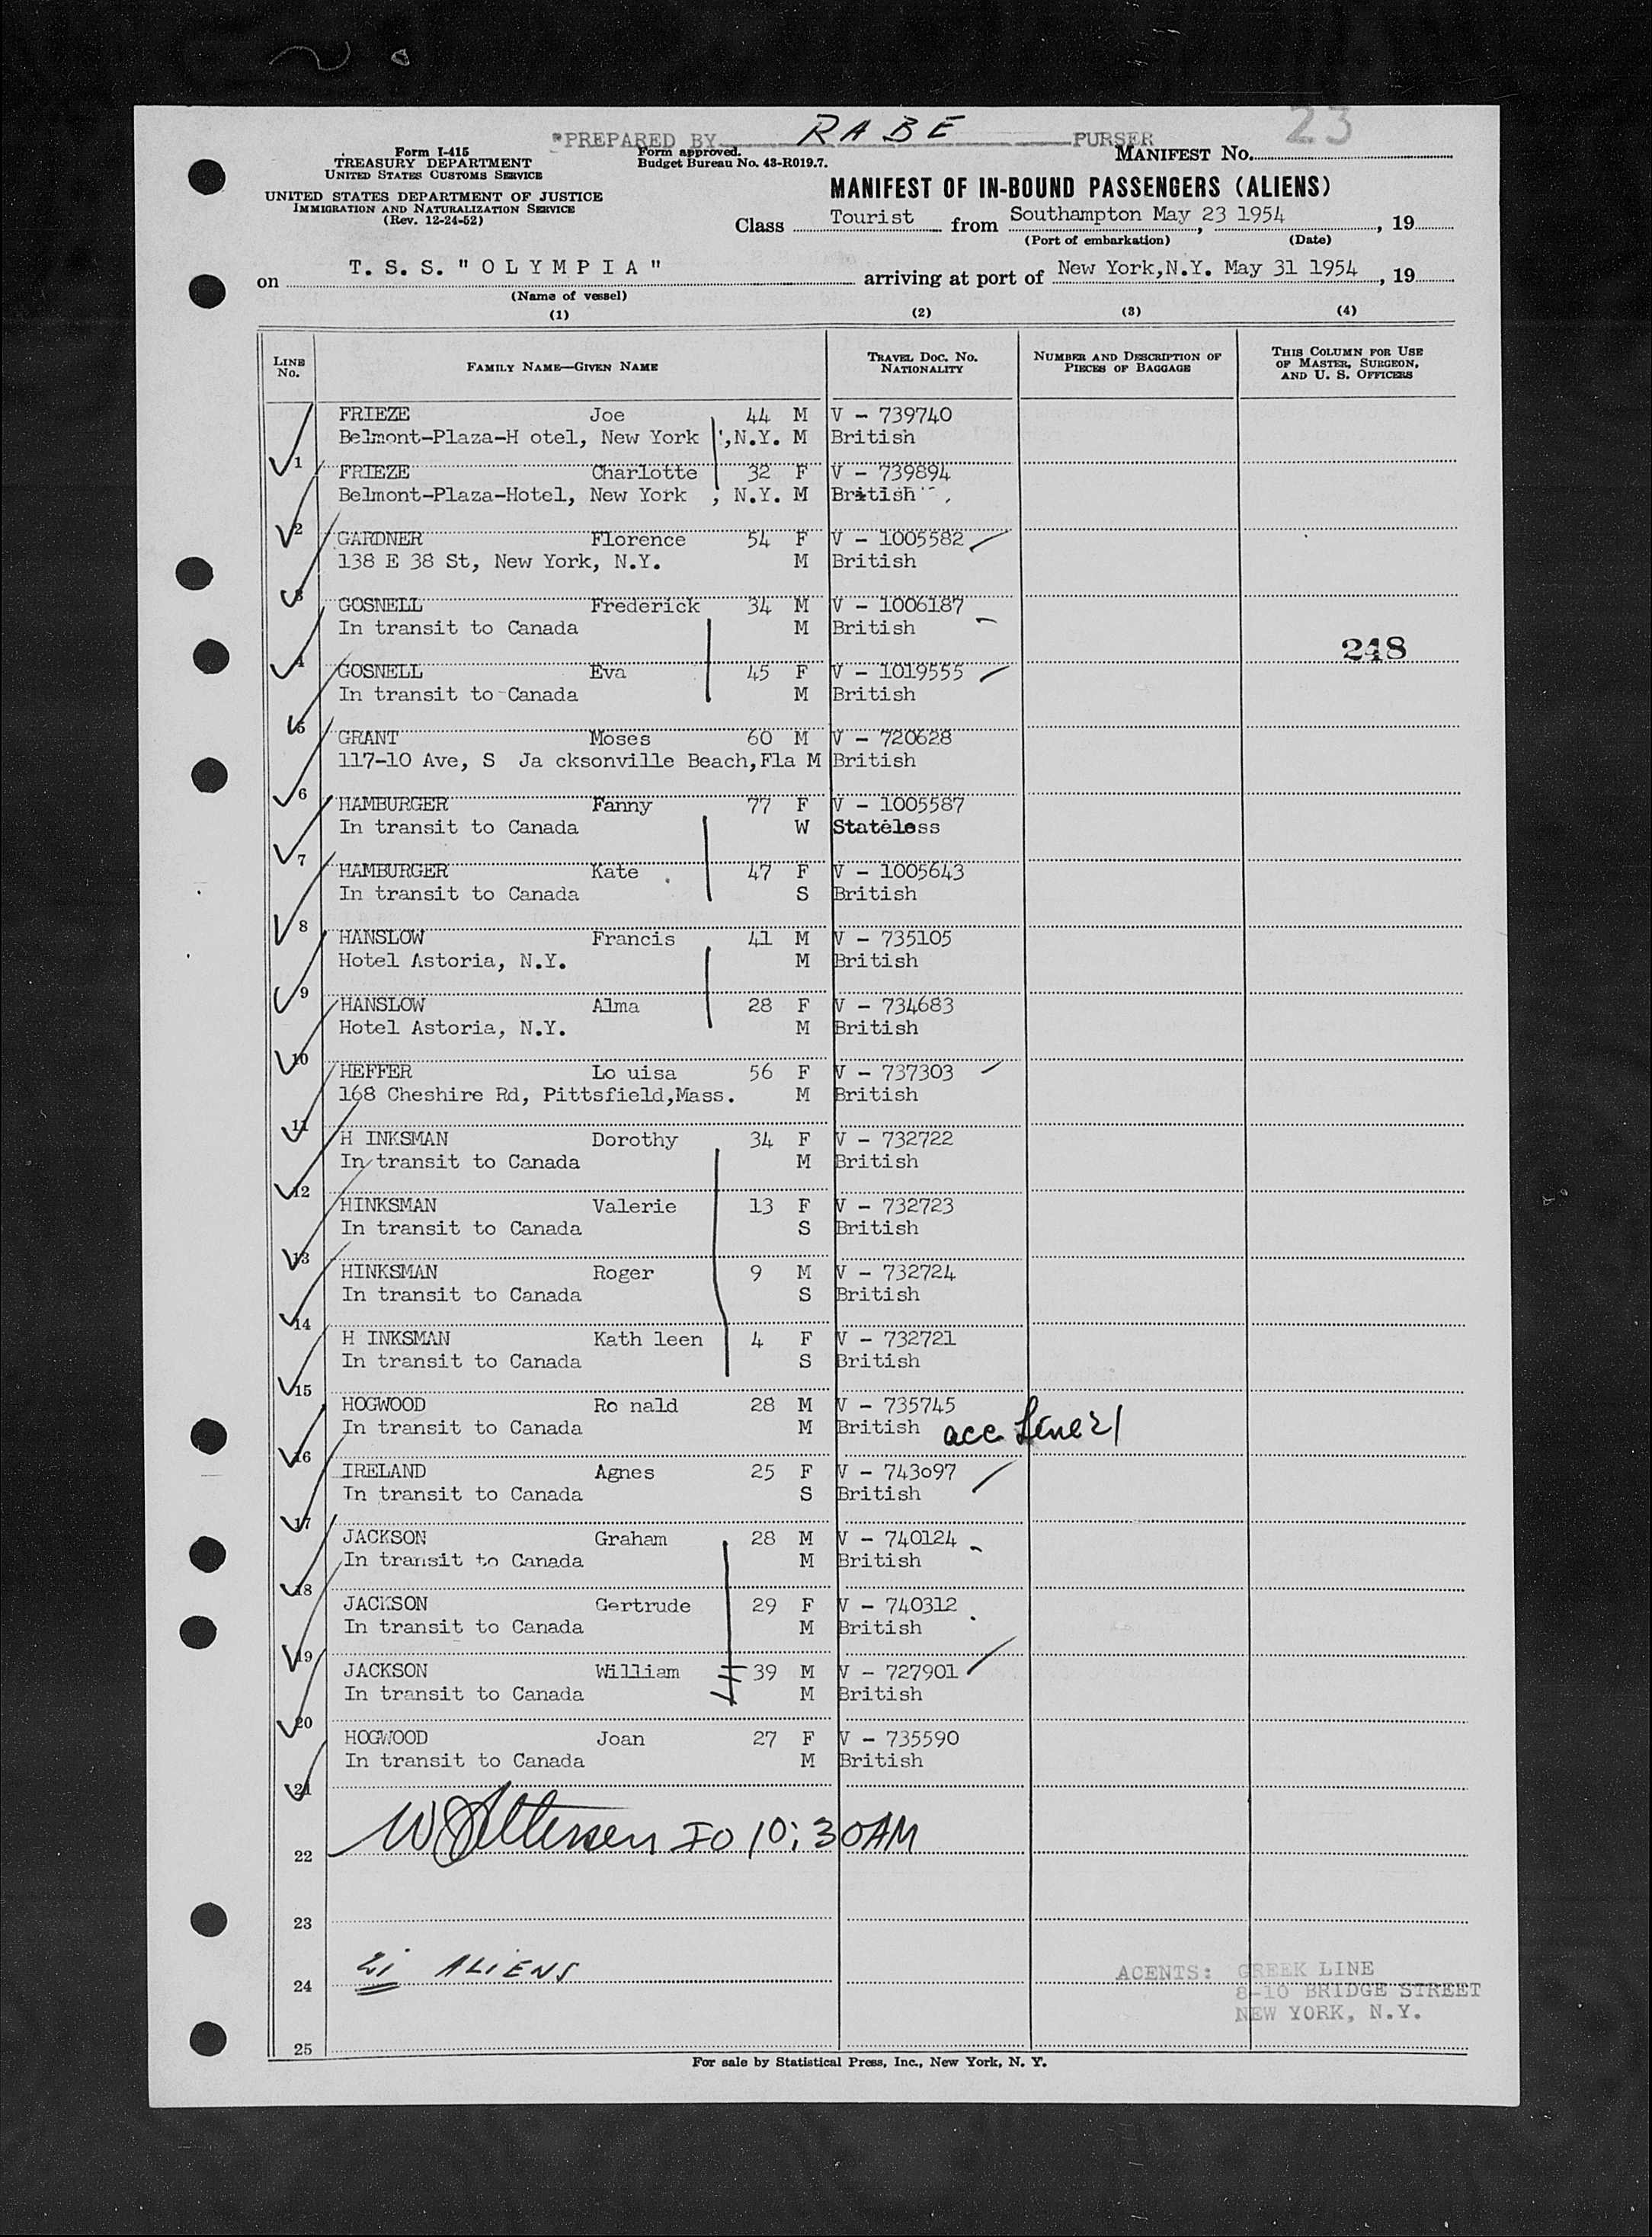 23
*PREPARED BY RABE PURSER
Form I-415
TREASURY DEPARTMENT
UNITED STATES CUSTOMS SERVICE
Form approved.
Budget Bureau No. 43-R019.7.
MANIFEST No.
UNITED STATES DEPARTMENT OF JUSTICE
IMMIGRATION AND NATURALIZATION SERVICE
(Rev. 12-24-52)
MANIFEST OF IN-BOUND PASSENGERS (ALIENS)
Class Tourist from Southampton May 23 1954, 19
(Port of embarkation) (Date)
on T. S. S. "OLYMPIA" arriving at port of New York,N.Y. May 31 1954, 19
(Name of vessel)
(1) (2) (3) (4)
LINE No. FAMILY NAME—GIVEN NAME TRAVEL DOC. No. NATIONALITY NUMBER AND DESCRIPTION OF PIECES OF BAGGAGE THIS COLUMN FOR USE OF MASTER, SURGEON, AND U. S. OFFICERS
FRIEZE Joe 44 M V - 739740
Belmont-Plaza-H otel, New York ,N.Y. M British
1
FRIEZE Charlotte 32 F V - 739894
Belmont-Plaza-Hotel, New York , N.Y. M British
2
GARDNER Florence 54 F V - 1005582
138 E 38 St, New York, N.Y. M British
3
GOSNELL Frederick 34 M V - 1006187
In transit to Canada M British
248
4
GOSNELL Eva 45 F V - 1019555
In transit to Canada M British
5
GRANT Moses 60 M V - 720628
117-10 Ave, S Ja cksonville Beach,Fla M British
6
HAMBURGER Fanny 77 F V - 1005587
In transit to Canada W Stateless
7
HAMBURGER Kate 47 F V - 1005643
In transit to Canada S British
8
HANSLOW Francis 41 M V - 735105
Hotel Astoria, N.Y. M British
9
HANSLOW Alma 28 F V - 734683
Hotel Astoria, N.Y. M British
10
HEFFER Lo uisa 56 F V - 737303
168 Cheshire Rd, Pittsfield,Mass. M British
11
H INKSMAN Dorothy 34 F V - 732722
In transit to Canada M British
12
HINKSMAN Valerie 13 F V - 732723
In transit to Canada S British
13
HINKSMAN Roger 9 M V - 732724
In transit to Canada S British
14
H INKSMAN Kath leen 4 F V - 732721
In transit to Canada S British
15
HOGWOOD Ro nald 28 M V - 735745
In transit to Canada M British acc Line 21
16
IRELAND Agnes 25 F V - 743097
In transit to Canada S British
17
JACKSON Graham 28 M V - 740124
In transit to Canada M British
18
JACKSON Gertrude 29 F V - 740312
In transit to Canada M British
19
JACKSON William 39 M V - 727901
In transit to Canada M British
20
HOGWOOD Joan 27 F V - 735590
In transit to Canada M British
21
IO 10:30AM
22
23
21 ALIENS
24
AGENTS: GREEK LINE
8-10 BRIDGE STREET
NEW YORK, N.Y.
25
For sale by Statistical Press, Inc., New York, N. Y.